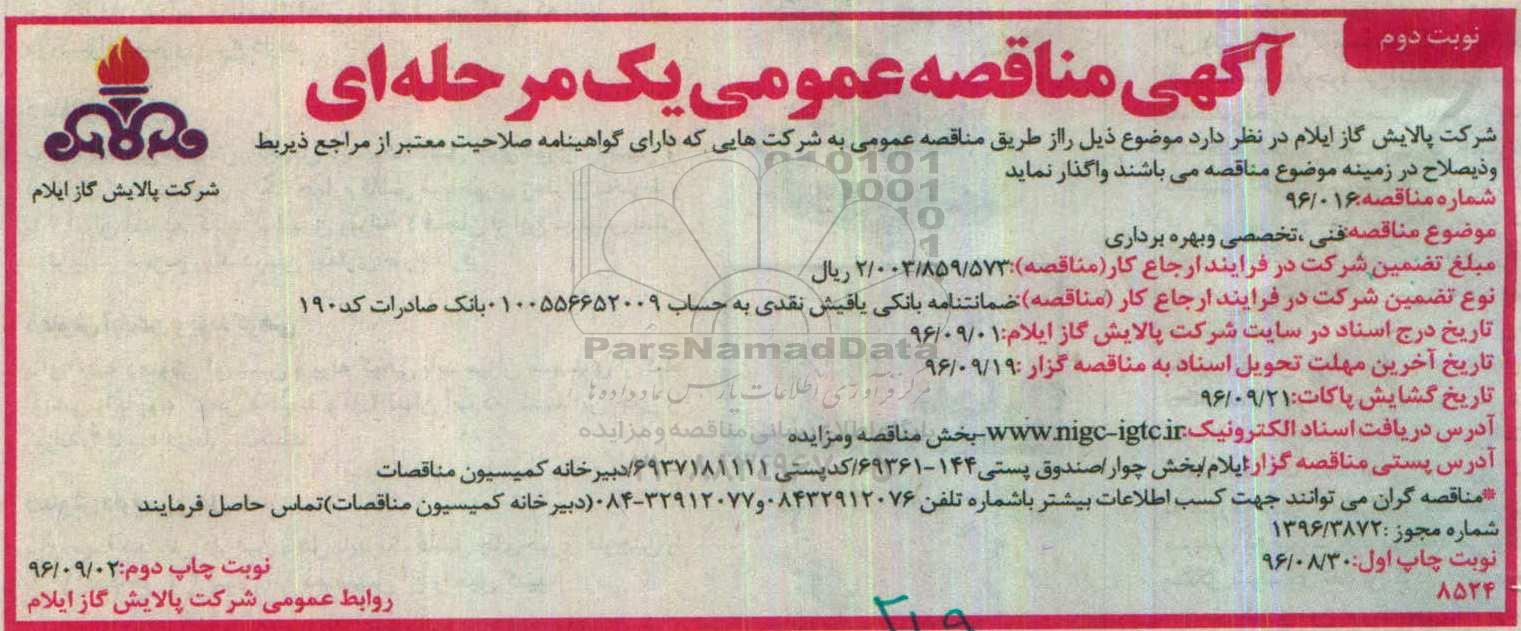 نوبت دوم
آگهی مناقصه عمومی یک مرحله‌ای
شرکت پالایش گاز ایلام
شرکت پالایش گاز ایلام در نظر دارد موضوع ذیل رااز طریق مناقصه عمومی به شرکت هایی که دارای گواهینامه صلاحیت معتبر از مراجع ذیربط
وذیصلاح در زمینه موضوع مناقصه می باشند واگذار نماید
شماره مناقصه:۹۶/۰۱۶
موضوع مناقصه:فنی ،تخصصی وبهره برداری
مبلغ تضمین شرکت در فرایند ارجاع کار(مناقصه):۲/۰۰۳/۸۵۹/۵۷۳ ریال
نوع تضمین شرکت در فرایند ارجاع کار (مناقصه):ضمانتنامه بانکی یافیش نقدی به حساب ۰۱۰۰۵۵۶۶۵۲۰۰۹بانک صادرات کد۱۹۰
تاریخ درج اسناد در سایت شرکت پالایش گاز ایلام:۹۶/۰۹/۰۱
تاریخ آخرین مهلت تحویل اسناد به مناقصه گزار :۹۶/۰۹/۱۹
تاریخ گشایش پاکات:۹۶/۰۹/۲۱
آدرس دریافت اسناد الکترونیک:www.nigc-igtc.ir-بخش مناقصه ومزایده
آدرس پستی مناقصه گزار:ایلام/بخش چوار/صندوق پستی۱۴۴-۶۹۳۶۱/کدپستی ۶۹۳۷۱۸۱۱۱۱/دبیرخانه کمیسیون مناقصات
*مناقصه گران می توانند جهت کسب اطلاعات بیشتر باشماره تلفن ۰۸۴۳۲۹۱۲۰۷۶و۳۲۹۱۲۰۷۷-۰۸۴(دبیرخانه کمیسیون مناقصات)تماس حاصل فرمایند
شماره مجوز :۱۳۹۶/۳۸۷۲
نوبت چاپ اول:۹۶/۰۸/۳۰
نوبت چاپ دوم:۹۶/۰۹/۰۲
۸۵۲۴
روابط عمومی شرکت پالایش گاز ایلام
ParsNamadData
مرکز فرآوری اطلاعات پارس نماد داده ها
۲۱۹